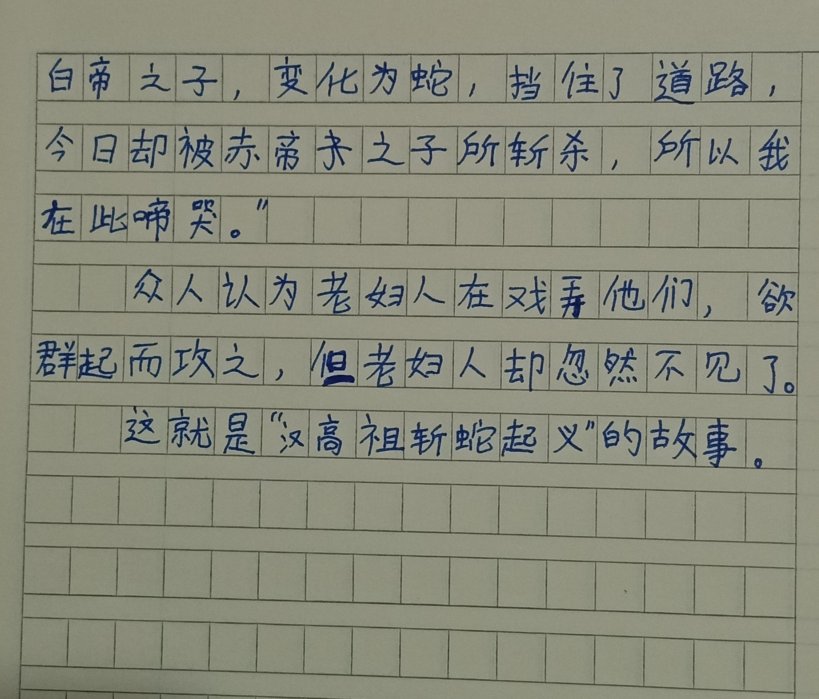 白帝之子，变化为蛇，挡住了道路，
今日却被赤帝之子所斩杀，所以我
在此啼哭。”
众人认为老妇人在戏弄他们，欲
群起而攻之，但老妇人却忽然不见了。
这就是“汉高祖斩蛇起义”的故事。